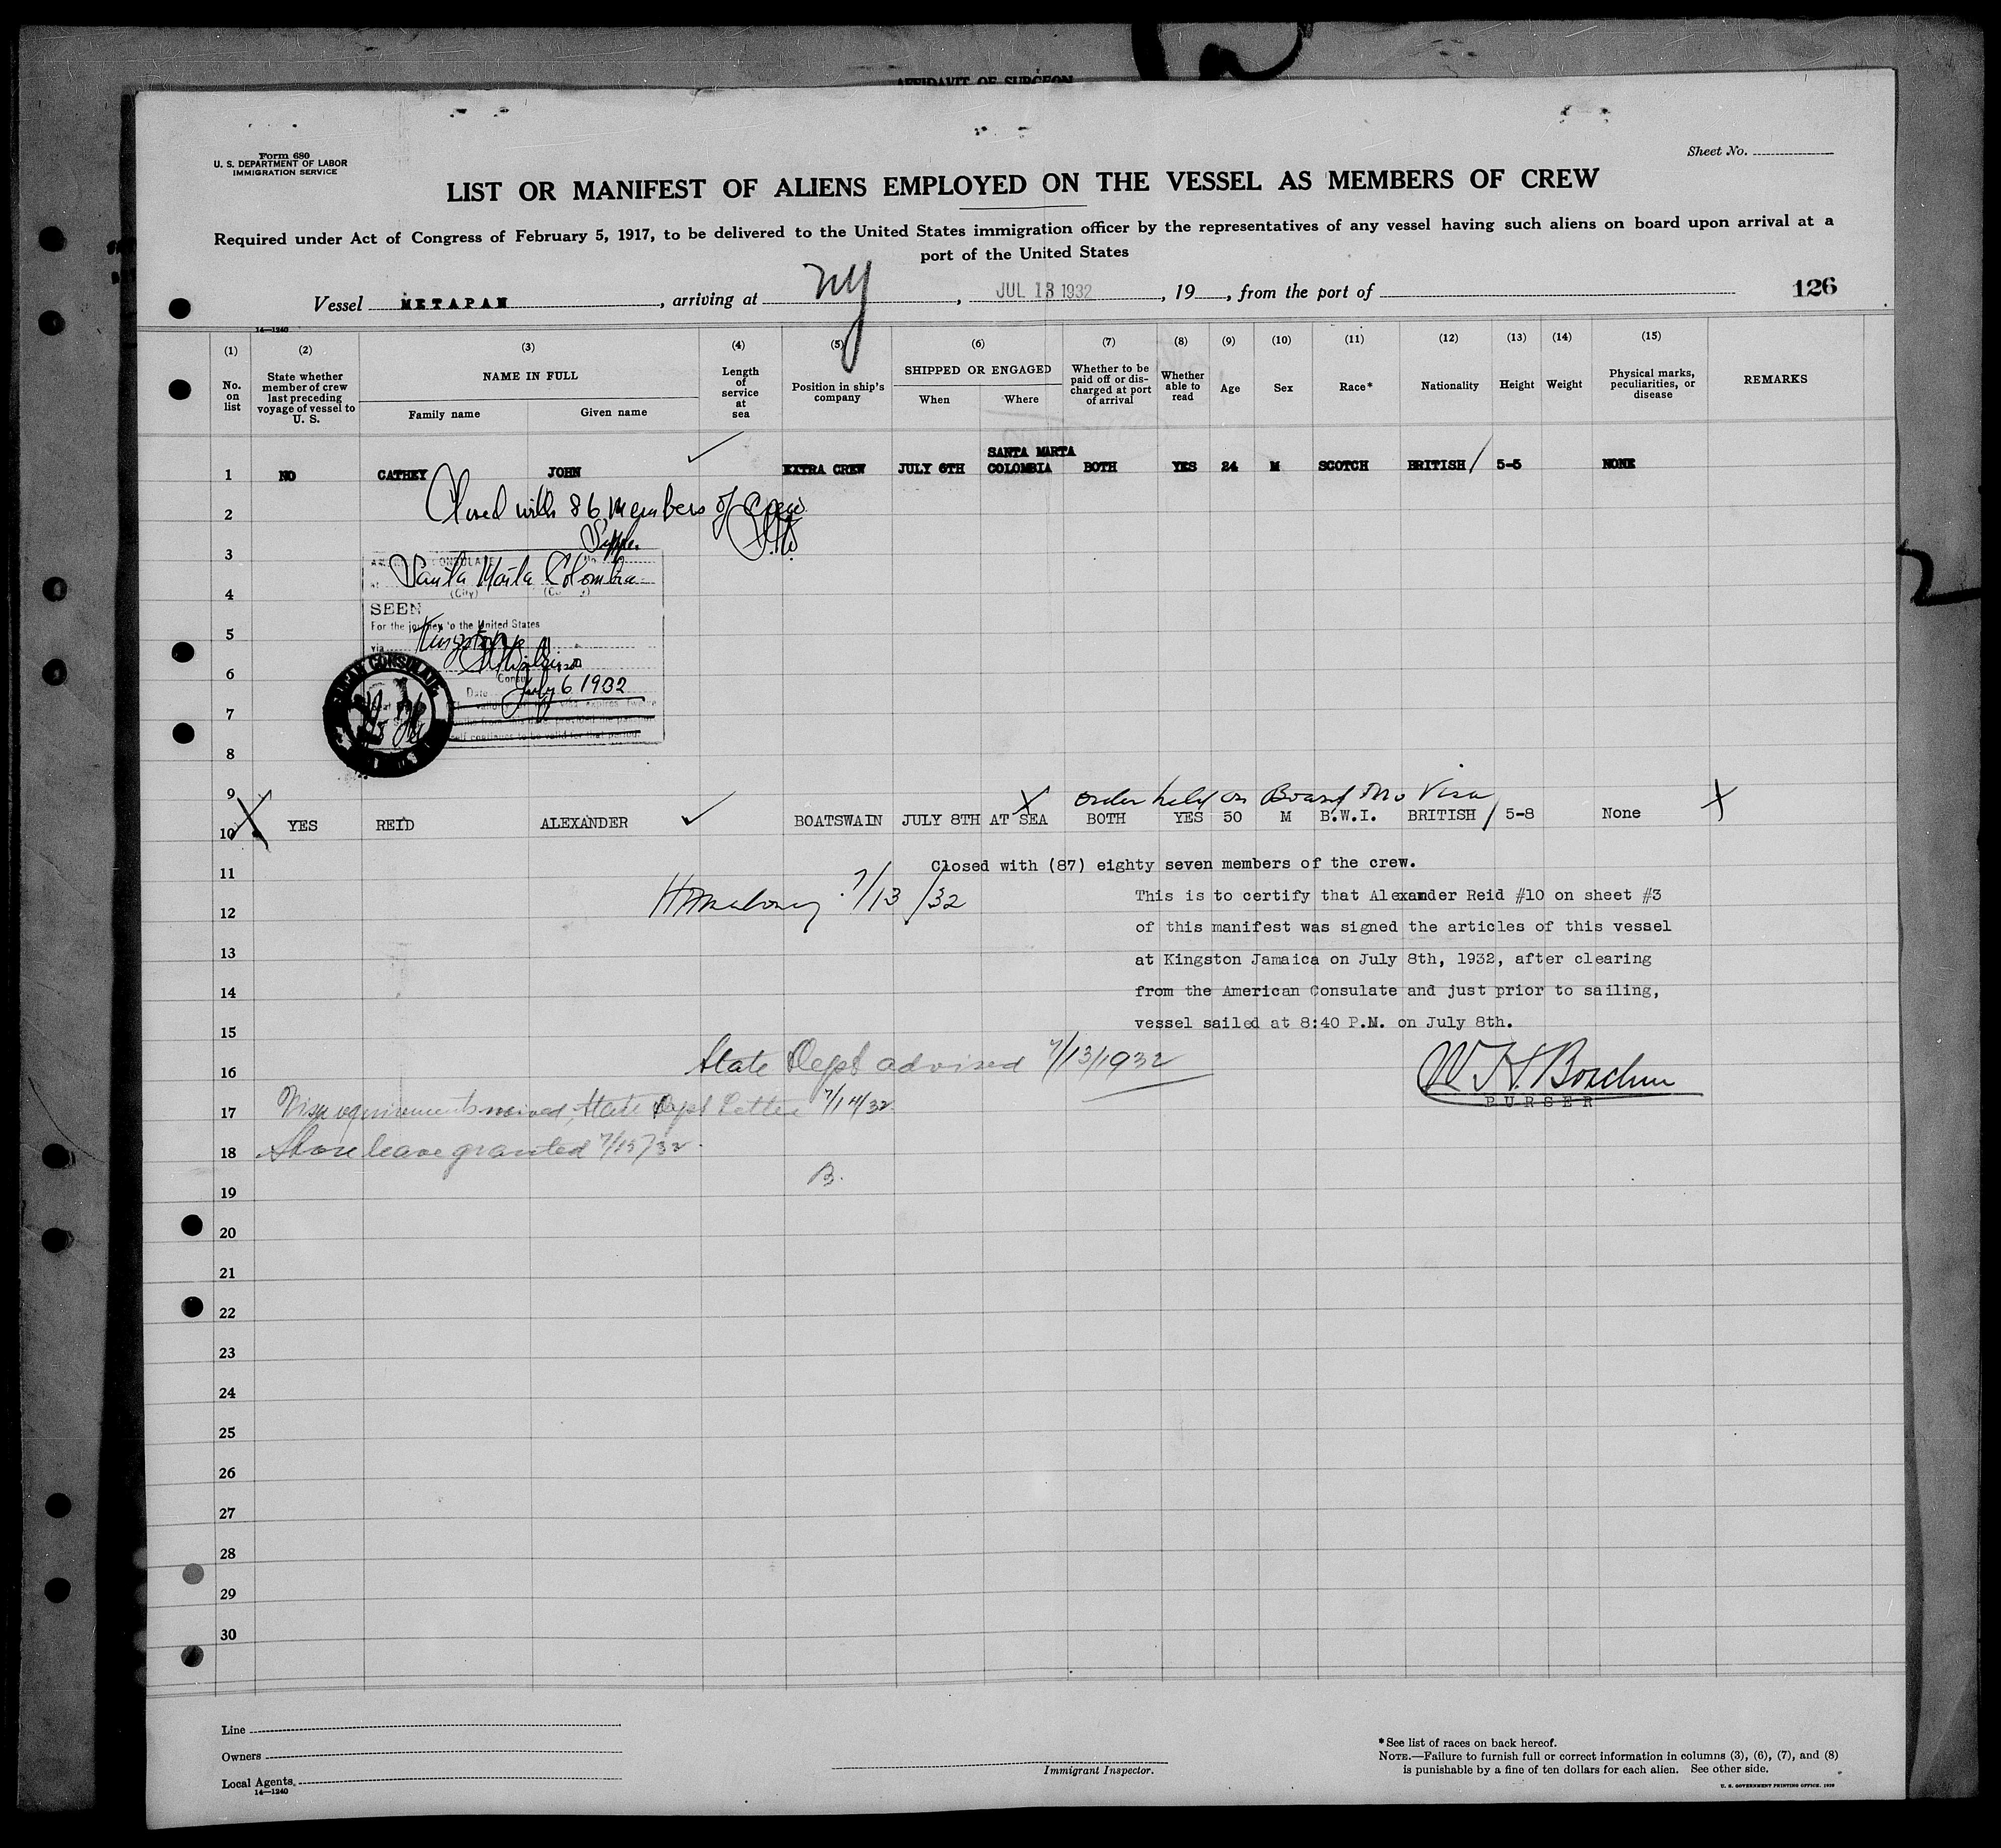 AFFIDAVIT OF SURGEON
Form 680
U. S. DEPARTMENT OF LABOR
IMMIGRATION SERVICE
Sheet No.
LIST OR MANIFEST OF ALIENS EMPLOYED ON THE VESSEL AS MEMBERS OF CREW
Required under Act of Congress of February 5, 1917, to be delivered to the United States immigration officer by the representatives of any vessel having such aliens on board upon arrival at a
port of the United States
Vessel METAPAN, arriving at NY, JUL 13 1932, 19, from the port of
126
14—1240
(1) (2) (3) (4) (5) (6) (7) (8) (9) (10) (11) (12) (13) (14) (15)
No. on list
State whether member of crew last preceding voyage of vessel to U. S.
NAME IN FULL
Family name Given name
Length of service at sea
Position in ship's company
SHIPPED OR ENGAGED
When Where
Whether to be paid off or discharged at port of arrival
Whether able to read
Age
Sex
Race*
Nationality
Height
Weight
Physical marks, peculiarities, or disease
REMARKS
1 NO CATHEY JOHN EXTRA CREW JULY 6TH SANTA MARTA COLOMBIA BOTH YES 24 M SCOTCH BRITISH / 5-5 NONE
2 Closed with 86 members of crew
3 Supple.
CONSULATE
Santa Marta Colombia
4 (City)
SEEN
For the journey to the United States
5 via Kingston
6
Consul
Date July 6 1932
7
self continues to be valid for that period.
AMERICAN CONSULATE
8
9 Order held on Board No Visa
10 YES REID ALEXANDER BOATSWAIN JULY 8TH AT SEA BOTH YES 50 M B.W.I. BRITISH / 5-8 None
11 Closed with (87) eighty seven members of the crew.
7/13/32
12 This is to certify that Alexander Reid #10 on sheet #3
of this manifest was signed the articles of this vessel
13 at Kingston Jamaica on July 8th, 1932, after clearing
14 from the American Consulate and just prior to sailing,
15 vessel sailed at 8:40 P.M. on July 8th.
16 State Dept advised 7/13/1932
PURSER
17 Visa requirements waived, State Dept Letter 7/14/32
18 Shore leave granted 7/15/32
B.
19
20
21
22
23
24
25
26
27
28
29
30
Line
Owners
Local Agents
14—1240
Immigrant Inspector.
*See list of races on back hereof.
NOTE.—Failure to furnish full or correct information in columns (3), (6), (7), and (8)
is punishable by a fine of ten dollars for each alien. See other side.
U. S. GOVERNMENT PRINTING OFFICE
2